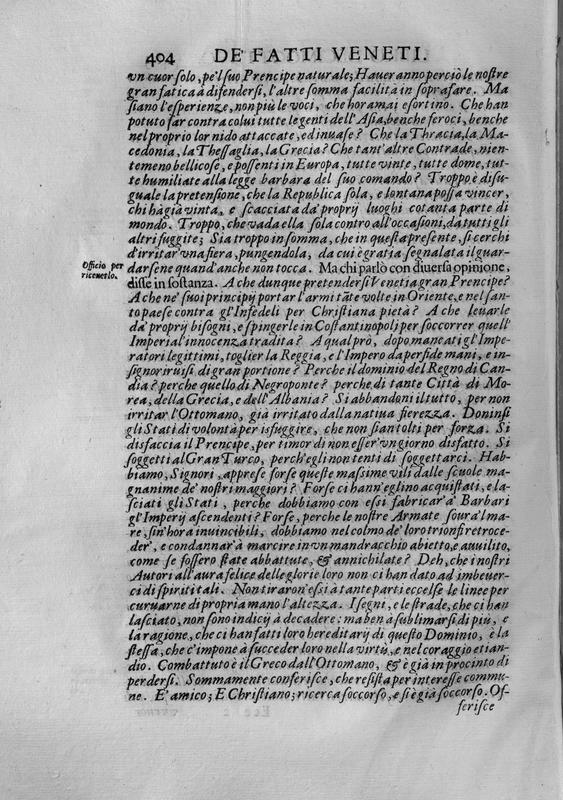 404 DE' FATTI VENETI.
vn cuor solo, pe'l suo Prencipe naturale; Haueranno perciò le nostre
gran fatica à difendersi, l'altre somma facilità in soprafare. Ma
siano l'esperienze, non più le voci, che horamai esortino. Che han
potuto far contra colui tutte le genti dell'Asia, benche feroci, benche
nel proprio lor nido attaccate, ed inuase? Che la Thracia, la Ma-
cedonia, la Thessaglia, la Grecia? Che tant'altre Contrade, nien-
temeno bellicose, e possenti in Europa, tutte vinte, tutte dome, tut-
te humiliate alla legge barbara del suo comando? Troppo è disu-
guale la pretensione, che la Republica sola, e lontana possa vincer,
chi hà già vinta, e scacciata da' proprij luoghi cotanta parte di
mondo. Troppo, che vada ella sola contro all'occasioni, da tutti gli
altri fuggite; Sia troppo in somma, che in questa presente, si cerchi
d'irritar vna fiera, pungendola, da cui è gratia segnalata il guar-
Officio per
riceuerlo.
darsene quand'anche non tocca. Ma chi parlò con diuersa opinione,
disse in sostanza. A che dunque pretendersi Venetia gran Prencipe?
A che ne' suoi principij portar l'armi tãte volte in Oriente, e nel san-
to paese contra gl'Infedeli per Christiana pietà? A che leuarle
da' proprij bisogni, e spingerle in Costantinopoli per soccorrer quell'
Imperial'innocenza tradita? A qual prò, dopo mancati gl'Impe-
ratori legittimi, toglier la Reggia, e l'Impero da perfide mani, e in-
signorirui si di gran portione? Perche il dominio del Regno di Can-
dia? perche quello di Negroponte? perche di tante Città di Mo-
rea, della Grecia, e dell'Albania? Si abbandoni il tutto, per non
irritar l'Ottomano, già irritato dalla natiua fierezza. Doninsi
gli Stati di volontà per isfuggire, che non sian tolti per forza. Si
disfaccia il Prencipe, per timor di non esser'vn giorno disfatto. Si
soggetti al Gran Turco, perch'egli non tenti di soggettarci. Hab-
biamo, Signori, apprese forse queste massime vili dalle scuole ma-
gnanime de' nostri maggiori? Forse ci hann'eglino acquistati, e la-
sciati gli Stati, perche dobbiamo con essi fabricar' à Barbari
gl'Imperij ascendenti? Forse, perche le nostre Armate soura'l ma-
re, sin'hora inuincibili, dobbiamo nel colmo de' loro trionfi retroce-
der', e condannar'à marcire in vn mandracchio abietto, e auuilito,
come se fossero state abbattute, & annichilate? Deh, che i nostri
Autori all'aura felice delle glorie loro non ci han dato ad imbeuer-
ci di spiriti tali. Non tiraron'essi à tante parti eccelse le linee per
curuarne di propria mano l'altezza. I segni, e le strade, che ci han
lasciato, non sono indicij à decadere; ma ben à sublimarsi di più, e
la ragione, che ci han fatti loro hereditarij di questo Dominio, è la
stessa, che c'impone à succeder loro nella virtù, e nel coraggio etian-
dio. Combattuto è il Greco dall'Ottomano, & è già in procinto di
perdersi. Sommamente conferisce, che resista per interesse commu-
ne. E' amico; E Christiano; ricerca soccorso, e si è già soccorso. Of-
ferisce